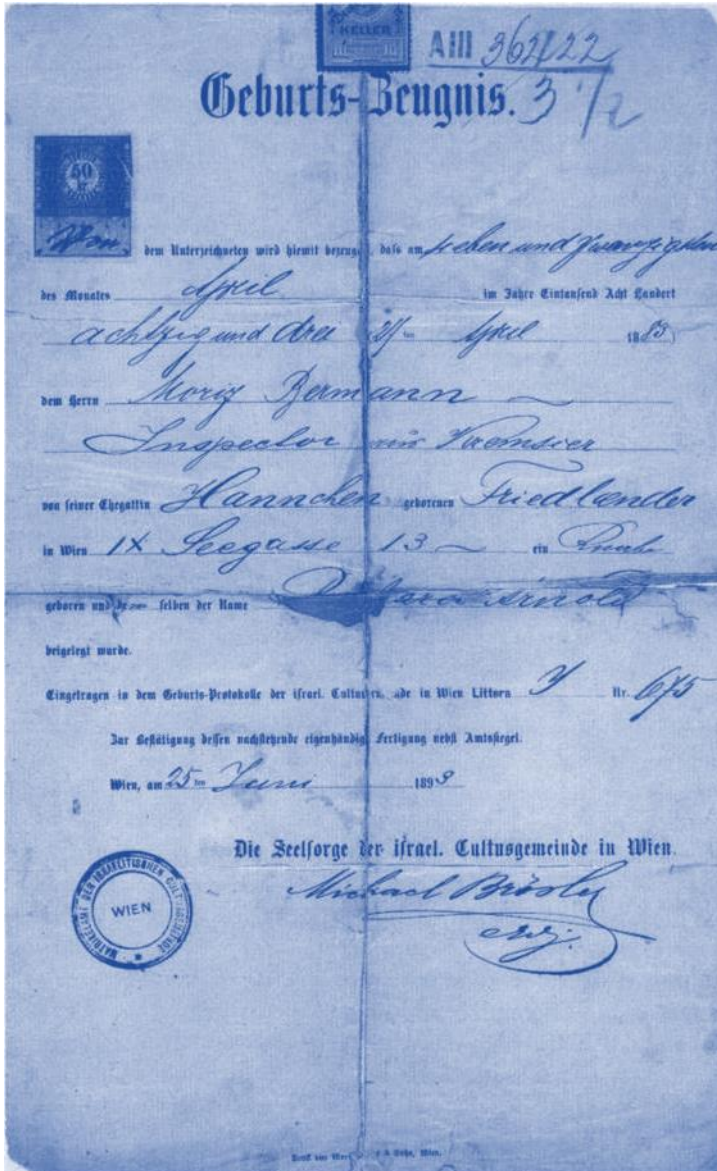 KELLER
A III 362/22
Geburts-Zeugnis. 3 1/2
50
Von dem Unterzeichneten wird hiemit bezeugt, dass am sieben und zwanzigsten
des Monates April im Jahre Eintausend Acht Hundert
achtzig und drei 27ten April 1883
dem Herrn Moriz Bermann
Inspector aus Kremsier
von seiner Ehegattin Hannchen geborenen Friedlaender
in Wien IX Seegasse 13 ein Knabe
geboren und selben der Name Arnold
beigelegt wurde.
Eingetragen in dem Geburts-Protokolle der israel. in Wien Littera Nr. 675
Zur Bestätigung dessen nachstehende eigenhändige Fertigung nebst Amtssiegel.
Wien, am 25ten Juni 1893
Die Seelsorge der israel. Cultusgemeinde in Wien.
MATRIKELAMT DER ISRAELITISCHEN CULTUSGEMEINDE
WIEN
Michael
Druck von & Sohn, Wien.